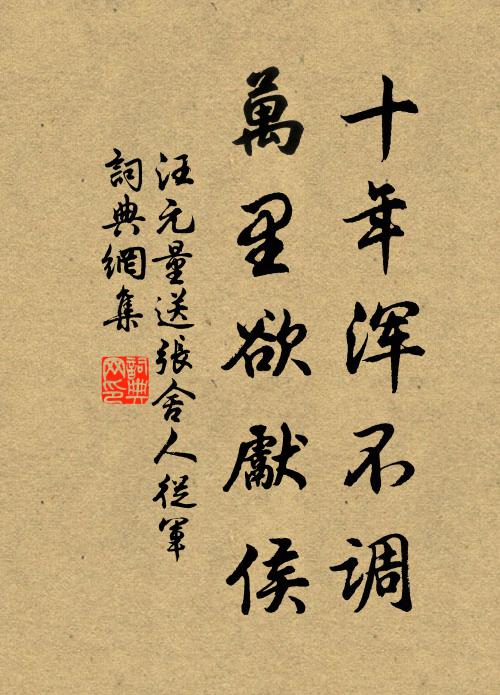 十年浑不调
萬里欲獻侯
汪元量送張舍人從軍
詞典網集
詞典
网印